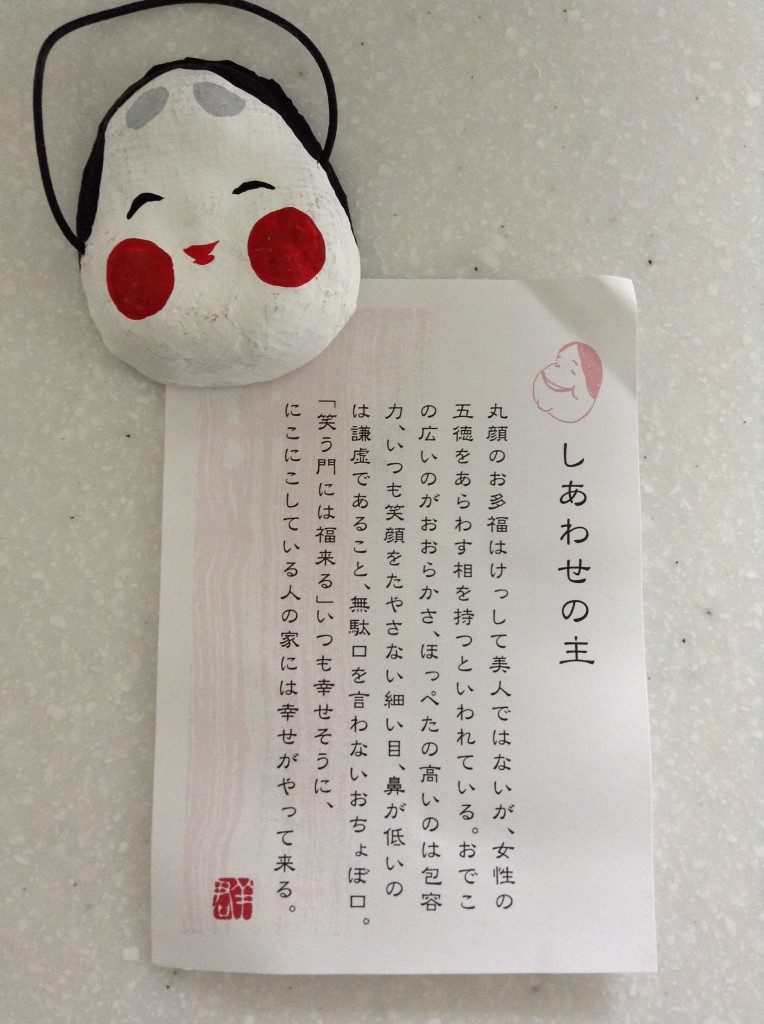 しあわせの主
丸顔のお多福はけっして美人ではないが、女性の
五徳をあらわす相を持つといわれている。おでこ
の広いのがおおらかさ、ほっぺたの高いのは包容
力、いつも笑顔をたやさない細い目、鼻が低いの
は謙虚であること、無駄口を言わないおちょぼ口。
「笑う門には福来る」いつも幸せそうに、
にこにこしている人の家には幸せがやって来る。